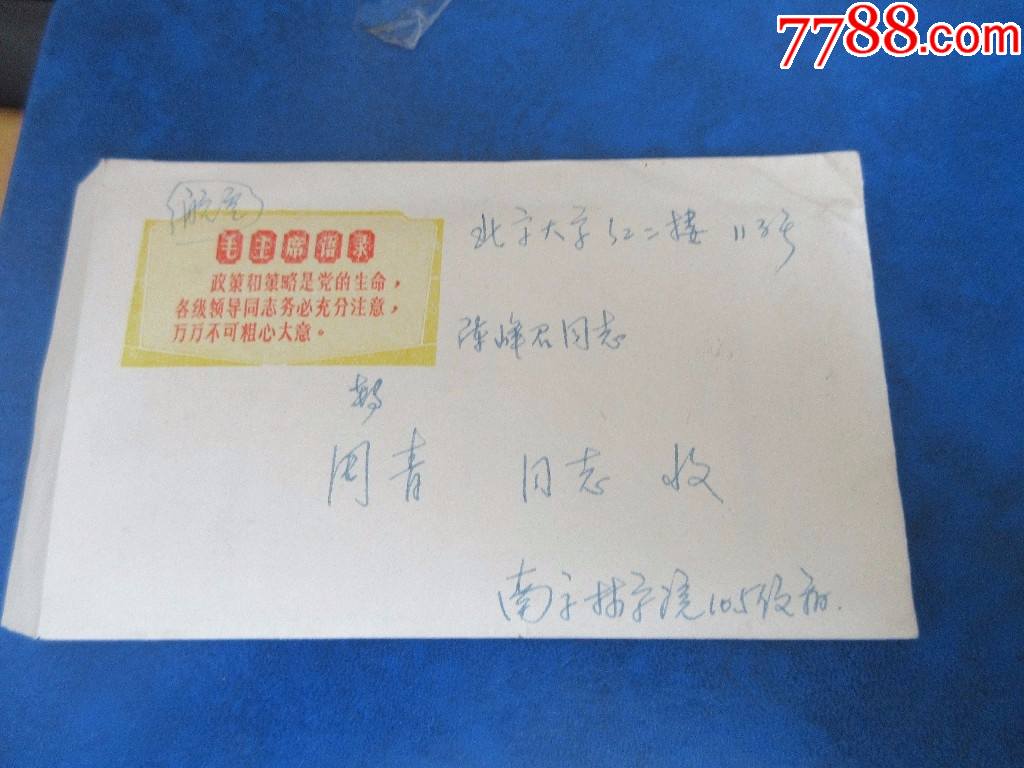 7788.com
航空
毛主席语录
政策和策略是党的生命，
各级领导同志务必充分注意，
万万不可粗心大意。
北京大学红二楼 113号
陈峰君同志
转
周青 同志 收
南京林学院105